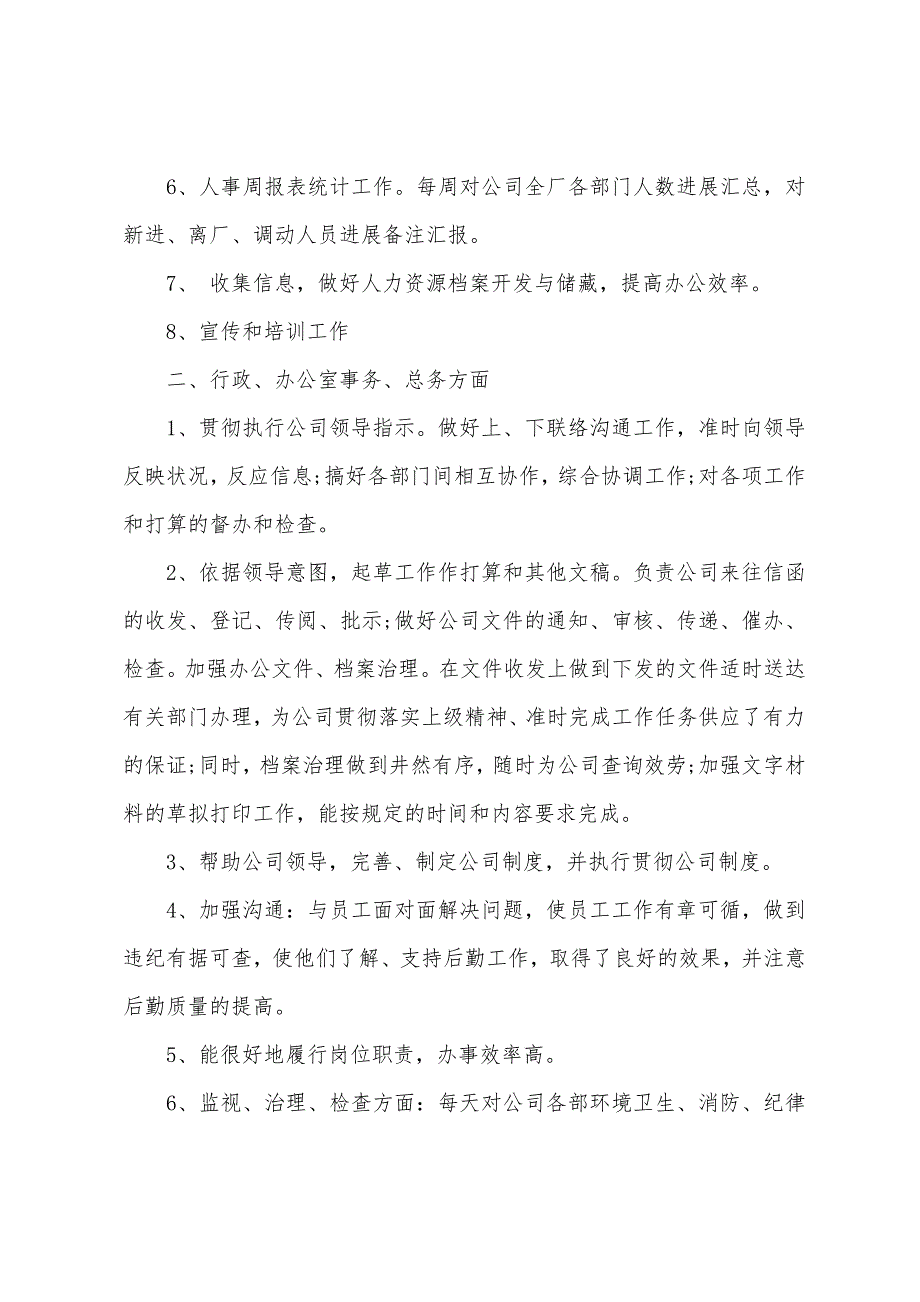 6、人事周报表统计工作。每周对公司全厂各部门人数进展汇总，对
新进、离厂、调动人员进展备注汇报。
7、 收集信息，做好人力资源档案开发与储藏，提高办公效率。
8、宣传和培训工作
二、行政、办公室事务、总务方面
1、贯彻执行公司领导指示。做好上、下联络沟通工作，准时向领导
反映状况，反应信息;搞好各部门间相互协作，综合协调工作;对各项工作
和打算的督办和检查。
2、依据领导意图，起草工作作打算和其他文稿。负责公司来往信函
的收发、登记、传阅、批示;做好公司文件的通知、审核、传递、催办、
检查。加强办公文件、档案治理。在文件收发上做到下发的文件适时送达
有关部门办理，为公司贯彻落实上级精神、准时完成工作任务供应了有力
的保证;同时，档案治理做到井然有序，随时为公司查询效劳;加强文字材
料的草拟打印工作，能按规定的时间和内容要求完成。
3、帮助公司领导，完善、制定公司制度，并执行贯彻公司制度。
4、加强沟通：与员工面对面解决问题，使员工工作有章可循，做到
违纪有据可查，使他们了解、支持后勤工作，取得了良好的效果，并注意
后勤质量的提高。
5、能很好地履行岗位职责，办事效率高。
6、监视、治理、检查方面：每天对公司各部环境卫生、消防、纪律